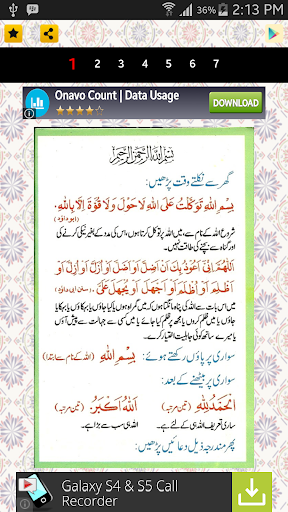 36% 2:13 PM
1 2 3 4 5 6 7
Onavo Count | Data Usage
DOWNLOAD
بسم اللہ الرحمن الرحیم
گھر سے نکلتے وقت پڑھیں:
بِسْمِ اللّٰهِ تَوَكَّلْتُ عَلَى اللّٰهِ لَا حَوْلَ وَلَا قُوَّةَ اِلَّا بِاللّٰهِ
(ابوداؤد)
شروع اللہ کے نام سے، میں اللہ پر توکل کرتا ہوں، اس کی مدد کے بغیر نیکی کرنے
اور گناہ سے بچنے کی طاقت نہیں۔
اَللّٰهُمَّ اِنِّىْ اَعُوْذُ بِكَ اَنْ اَضِلَّ اَوْ اُضَلَّ اَوْ اَزِلَّ اَوْ اُزَلَّ اَوْ
اَظْلِمَ اَوْ اُظْلَمَ اَوْ اَجْهَلَ اَوْ يُجْهَلَ عَلَىَّ
میں اس بات سے اللہ کی پناہ مانگتا ہوں کہ میں گمراہ ہو
جاؤں یا میں ظلم کروں یا مجھ پر ظلم کیا جائے یا میں کسی سے جہالت سے پیش آؤں
یا میرے ساتھ کوئی جاہلیت اختیار کرے۔
سواری پر پاؤں رکھتے ہوئے: بِسْمِ اللّٰهِ (اللہ کے نام سے ابتدا)
سواری پر بیٹھنے کے بعد:
اَلْحَمْدُ لِلّٰهِ (تین مرتبہ) اَللّٰهُ اَكْبَرُ (تین مرتبہ)
ساری تعریف اللہ ہی کے لئے ہے۔ اللہ ہی سب سے بڑا ہے۔
پھر مندرجہ ذیل دعائیں پڑھیں:
Galaxy S4 & S5 Call
Recorder